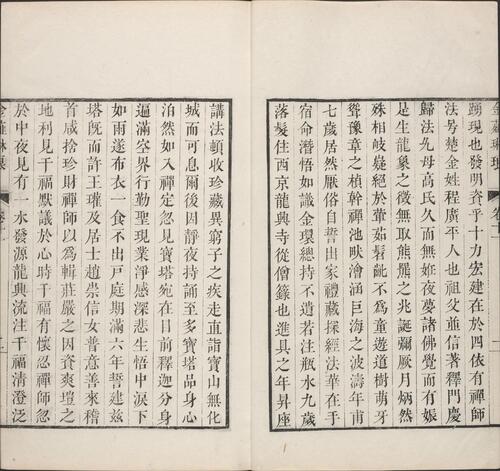 金薤琳琅 卷十一
踴現也發明資乎十力宏建在於四依有禪師
法号楚金姓程廣平人也祖父並信著釋門慶
歸法允母高氏久而無姙夜夢諸佛覺而有娠
是生龍象之徵無取熊羆之兆誕彌厥月炳然
殊相岐嶷絕於葷茹髫齔不為童遊道樹萌牙
聳豫章之楨幹禪池畎澮涵巨海之波濤年甫
七歲居然厭俗自誓出家禮藏探經法華在手
宿命潛悟如識金環總持不遺若注瓶水九歲
落髮住西京龍興寺從僧籙也進具之年昇座
講法頓收珍藏異窮子之疾走直詣寶山無化
城而可息爾後因靜夜持誦至多寶塔品身心
泊然如入禪定忽見寶塔宛在目前釋迦分身
逼滿空界行勤聖現業淨感深悲生悟中淚下
如雨遂布衣一食不出戶庭期滿六年誓建茲
塔旣而許王瓘及居士趙崇信女普意善來稽
首咸捨珍財禪師以為輯莊嚴之因資爽塏之
地利見千福默議於心時千福有懷忍禪師忽
於中夜見有一水發源龍興流注千福清澄泛
金薤琳琅